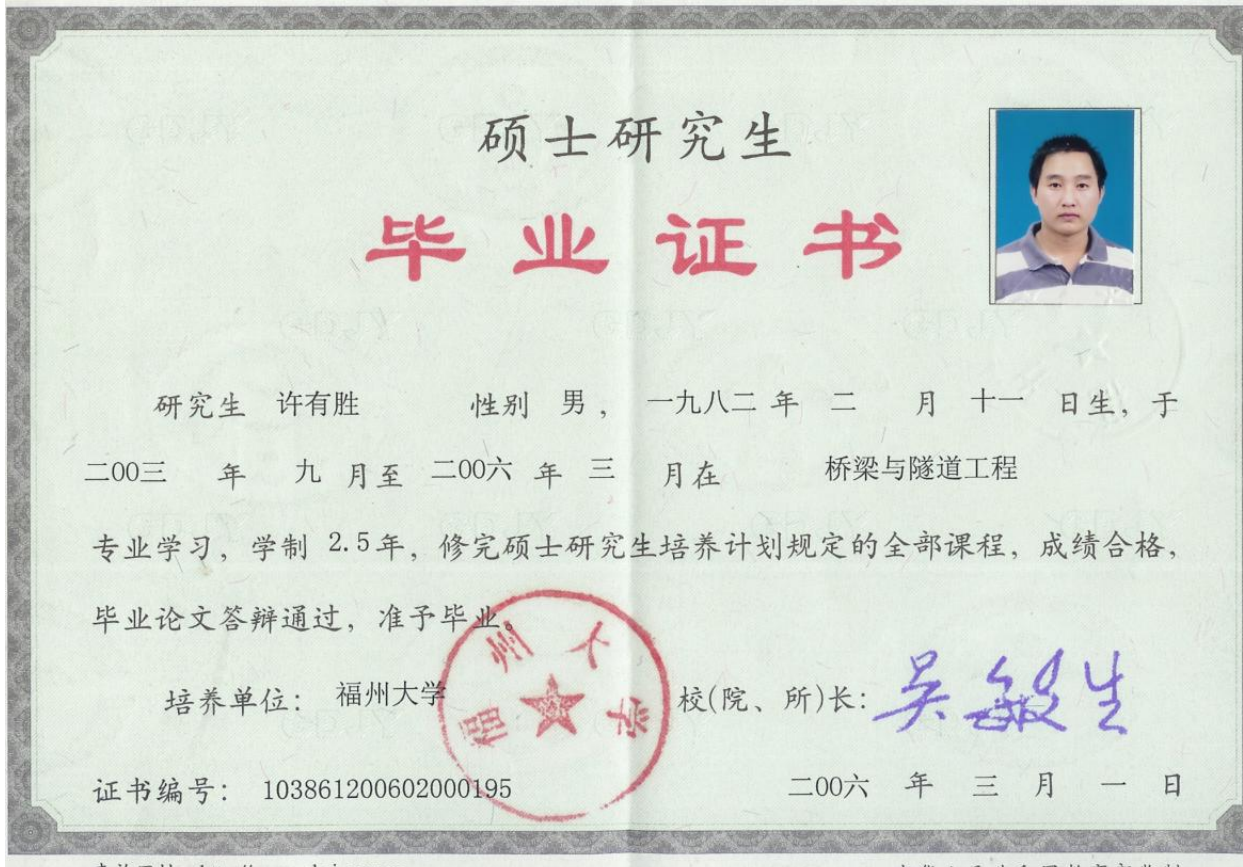 硕士研究生
毕业证书
研究生 许有胜 性别 男, 一九八二 年 二 月 十一 日生, 于
二00三 年 九 月至 二00六 年 三 月在 桥梁与隧道工程
专业学习, 学制 2.5年, 修完硕士研究生培养计划规定的全部课程, 成绩合格,
毕业论文答辩通过, 准予毕业。
培养单位: 福州大学 校(院、所)长: 吴敏生
福州大学
证书编号: 103861200602000195 二00六 年 三 月 一 日